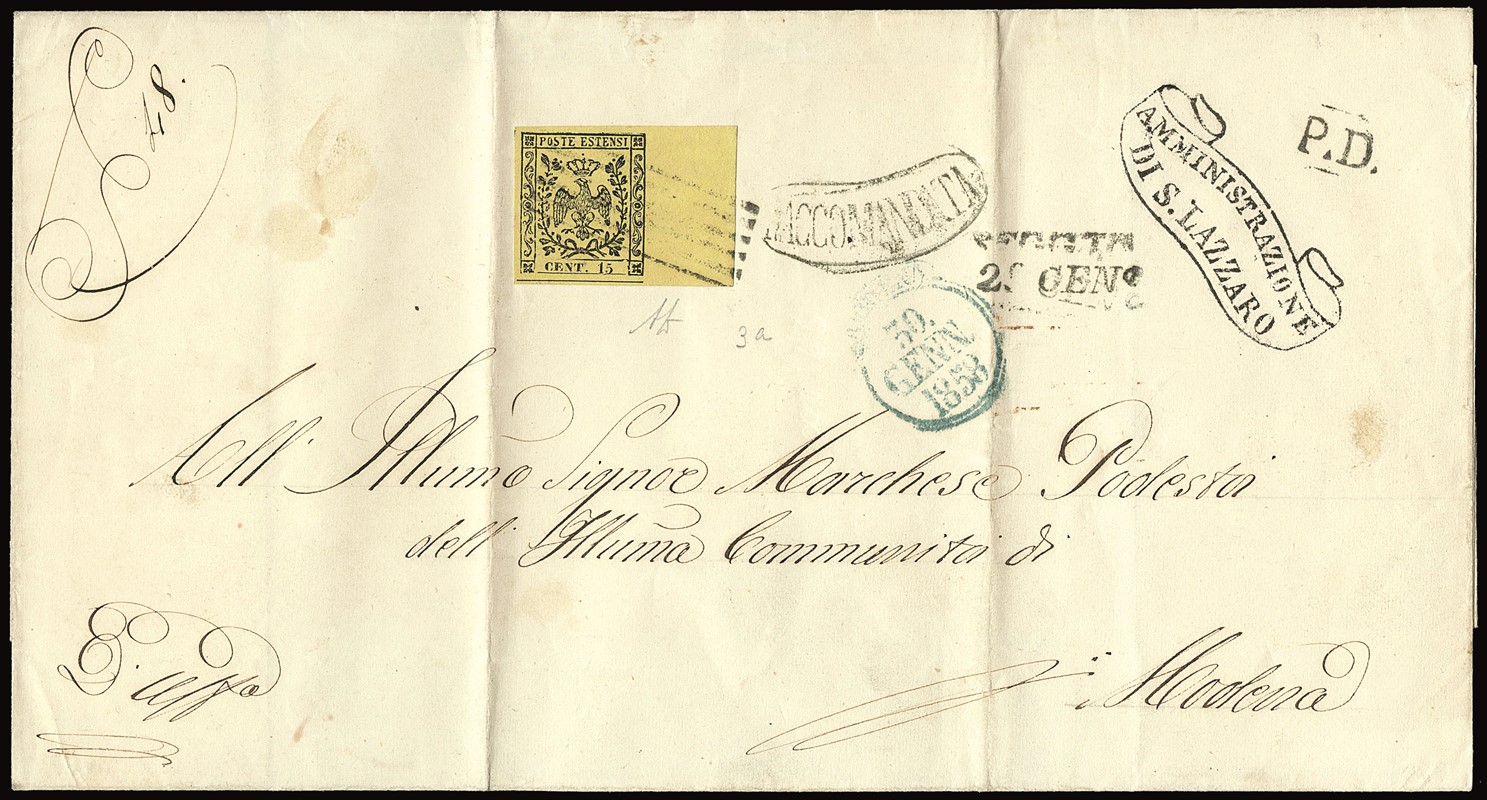 48.
POSTE ESTENSI
CENT. 15
RACCOMANDATA
AMMINISTRAZIONE
DI S. LAZZARO
P.D.
GENO
30.
GENN.
1858
3a
All' Illumo Signor Marchese Podestà
dell' Illuma Communità di
Modena
D' uffo